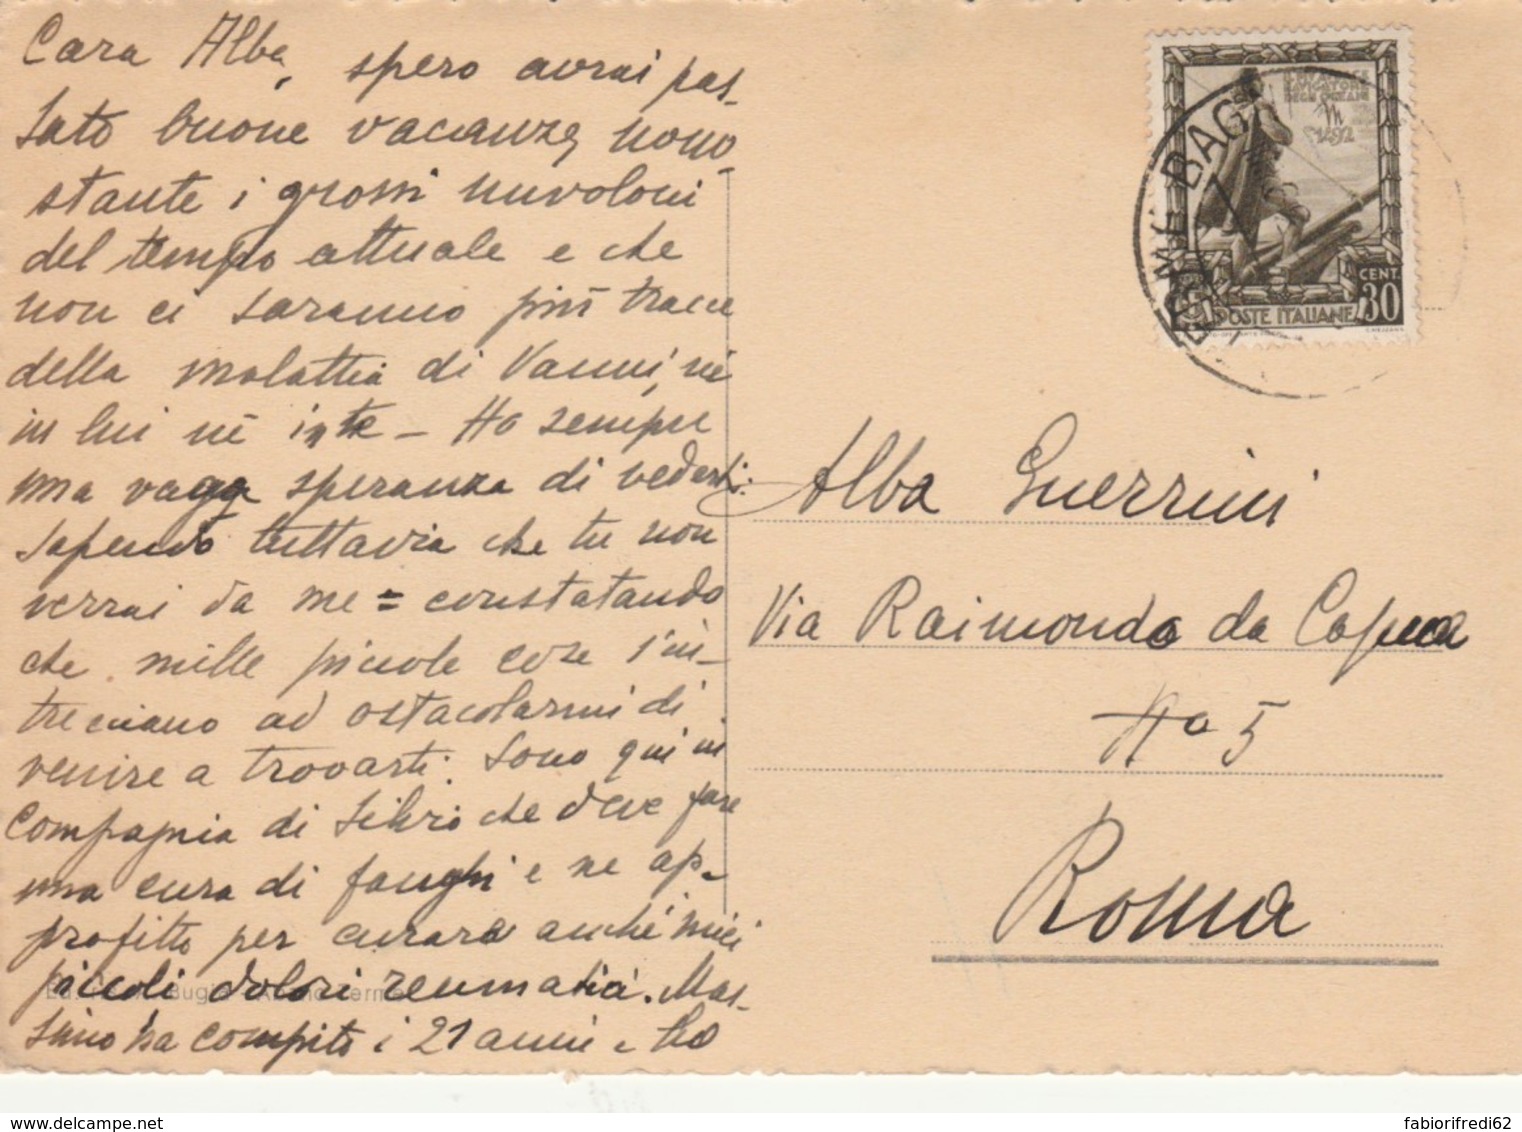 Cara Alba, spero avrai pas-
sato buone vacanze, nono-
stante i grossi nuvoloni
del tempo attuale e che
non ci saranno più tracce
della malattia di Vanni, né
in lui né in te - Ho sempre
una vaga speranza di vederti:
sapendo tuttavia che tu non
verrai da me = constatando
che mille piccole cose s'in-
trecciano ad ostacolarmi di
venire a trovarti. Sono qui in
compagnia di Silvio che deve fare
una cura di fanghi e ne ap-
profitto per curare anche i miei
piccoli dolori reumatici. Mas-
simo ha compito i 21 anni e ha
POSTE ITALIANE
CENT. 30
1492
TERME BAG
Alba Guerrini
Via Raimondo da Capua
No 5
Roma
delcampe.net
fabiorifredi62